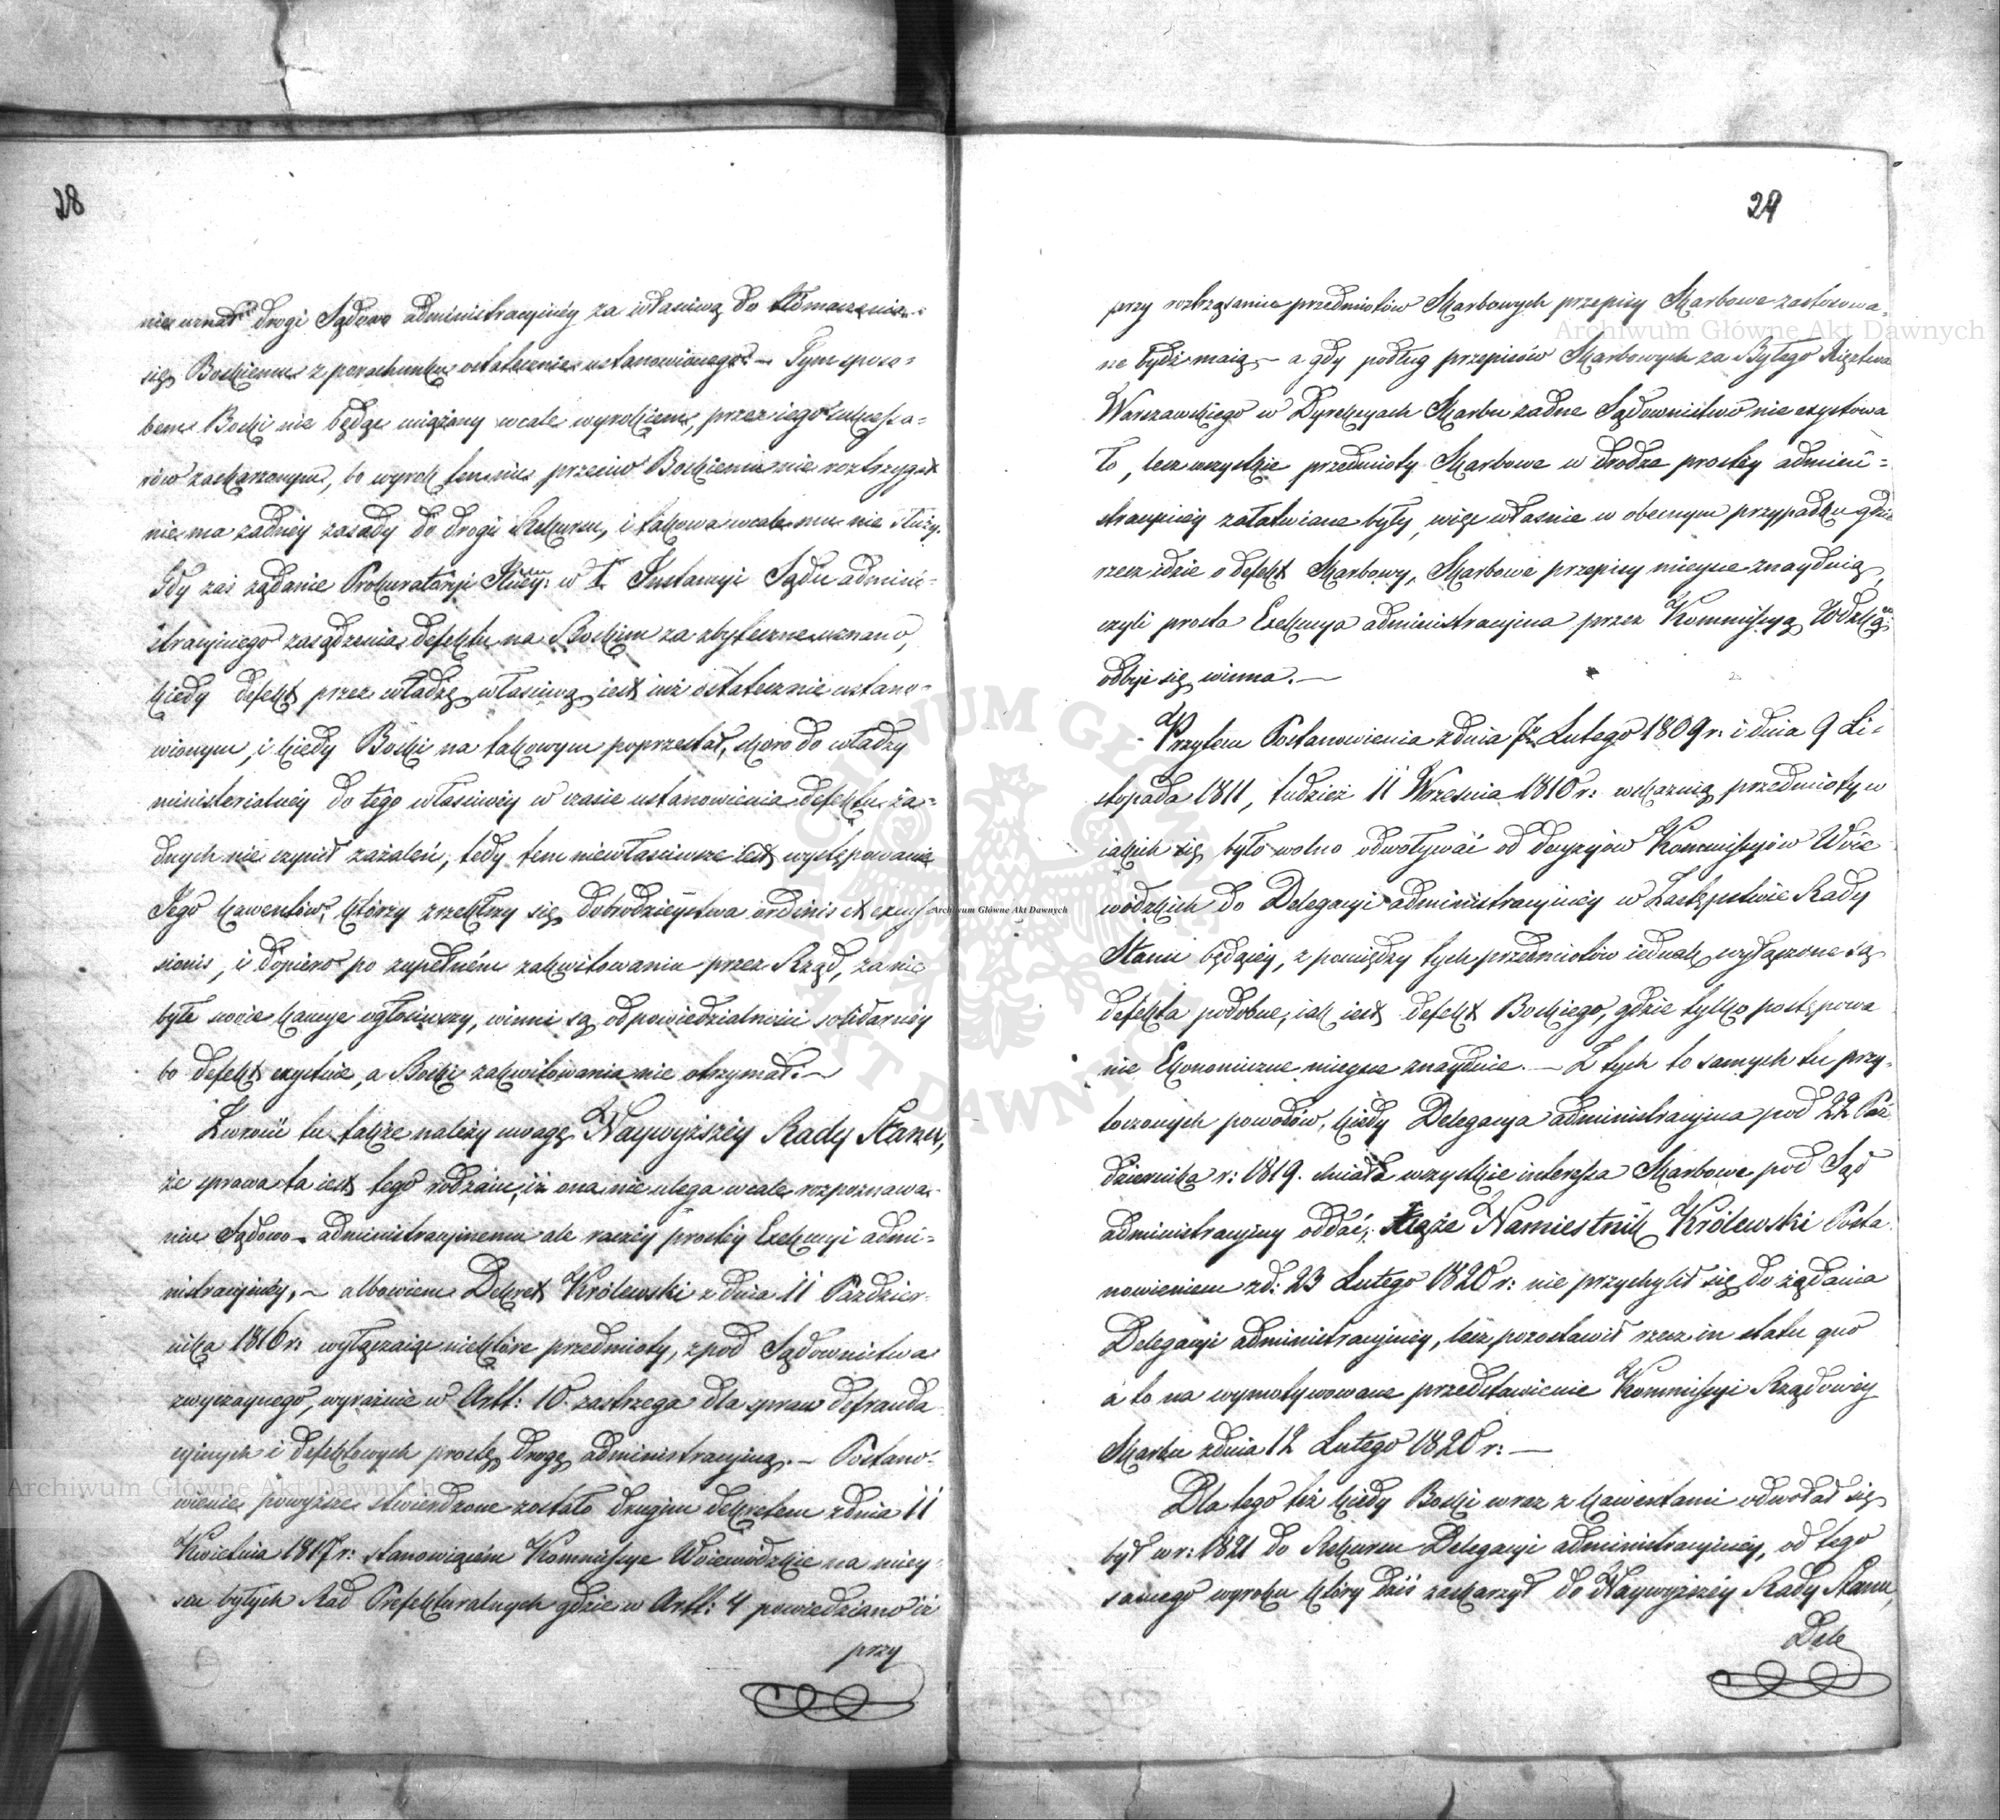 28
nie uznał drogi Sądowo administracyinéy za właściwą do tłómaczenia
się Bockiemu z porachunku ostatecznie ustanowionego. — Tym sposo-
bem Bocki nie będąc uciążony wcale wyrokiem, przez iego sukcesso-
rów zaskarżonym, bo wyrok ten nic przeciw Bockiemu nie roztrzygał
nie ma żadnéy zasady do drogi Rekursu, i takowa wcale mu nie służy.
Gdy zaś żądanie Prokuratoryi w I. Instancyi Sądu admini-
stracyinego zasądzenia defektu na Bockim za zbyteczne uznano,
kiedy defekt przez władzę właściwą iest iuż ostatecznie ustano-
wionym, i kiedy Bocki na takowym poprzestał, skoro do władzy
ministerialnéy do tego właściwéy w czasie ustanowienia defektu ża-
dnych nie czynił zażaleń, tedy tem niewłaściwsze iest występowanie
Jego kawentów, którzy zrzekłszy się dobrodzieystwa ordinis et excus-
sionis, i dopiero po zupełném zakwitowaniu przez Rząd, za nie
byłe swoie kaucye ogłosiwszy, winni są odpowiedzialności solidarnéy
bo defekt exystuie, a Bocki zakwitowania nie otrzymał. —
Zwrócić tu także należy uwagę Naywyższéy Rady Stanu,
że sprawa ta iest tego rodzaiu, iż ona nie ulega wcale rozpoznawa-
niu Sądowo-administracyinemu ale raczéy prostéy Exekucyi admi-
nistracyinéy, — albowiem Dekret Królewski z dnia 11 Paździer-
nika 1816 r: wyłączaiąc niektóre przedmioty, z pod Sądownictwa
zwyczaynego, wyraźnie w Artt: 10. zastrzega dla spraw defrauda-
cyinych i defektowych prostą drogę administracyiną. — Postano-
wienie powyższe stwierdzone zostało drugim dekretem z dnia 11
Kwietnia 1817 r: stanowiącém Kommissye Woiewódzkie na miey-
scu byłych Rad Prefekturalnych gdzie w Artt: 4 powiedziano iż
przy
29
przy roztrząsaniu przedmiotów Skarbowych przepisy Skarbowe zastosowa-
ne bydź maią — a gdy podług przepisów Skarbowych za Byłego Xięztwa
Warszawskiego w Dyrekcyach Skarbu żadne Sądownictwo nie exystowa
ło, lecz wszystkie przedmioty Skarbowe w drodze prostéy admini-
stracyinéy załatwiane były, więc właśnie w obecnym przypadku gdzie
rzecz idzie o defekt Skarbowy, Skarbowe przepisy mieysce znaydują,
czyli prosta Exekucya administracyina przez Kommissyą Wdzką
odbyć się winna. —
Przytem Postanowienia z dnia Lutego 1809 r: i dnia 9 Li-
stopada 1811, tudzież 11 Września 1810 r: wskazuią przedmioty w
iakich się było wolno odwoływać od decyzyów Kommissyów Woie
wódzkich do Delegacyi administracyinéy w Zastępstwie Rady
Stanu będącéy, z pomiędzy tych przedmiotów iednak wyłączone są
defekta podobne, iak iest defekt Bockiego, gdzie tylko postępowa
nie Ekonomiczne mieysce znayduie. — Z tych to samych tu przy-
toczonych powodów, kiedy Delegacya administracyina pod 22 Paź-
dziernika r: 1819. chciała wszystkie interessa Skarbowe pod Sąd
administracyiny oddać, Xiąże Namiestnik Królewski Posta
nowieniem z d: 23 Lutego 1820 r: nie przychylił się do żądania
Delegacyi administracyinéy, lecz pozostawił rzecz in statu quo
a to na wymotywowane przedstawienie Kommissyi Rządowéy
Skarbu z dnia 12 Lutego 1820 r: —
Dla tego też kiedy Bocki wraz z kawentami odwołał się
był w r: 1821 do Rekursu Delegacyi administracyinéy, od tego
samego wyroku który dziś zaskarżył do Naywyższéy Rady Stanu,
Dele
Archiwum Główne Akt Dawnych
Archiwum Główne Akt Dawnych
Archiwum Główne Akt Dawnych
ARCHIWUM GŁÓWNE AKT DAWNYCH